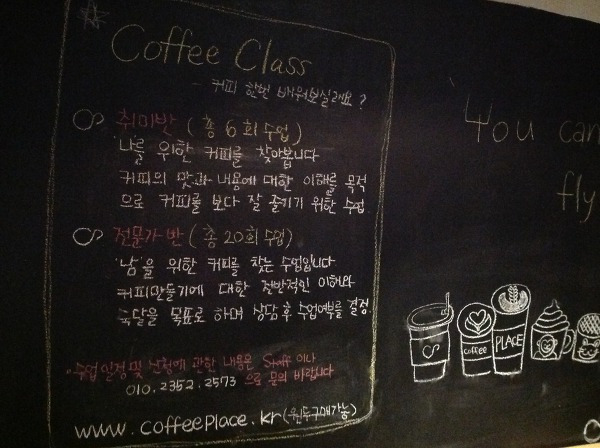 Coffee Class
- 커피 한번 배워보실래요?
취미반 (총 6회 수업)
'나'를 위한 커피를 찾아봅니다
커피의 맛과 내용에 대한 이해를 목적
으로 커피를 보다 잘 즐기기 위한 수업
전문가반 (총 20회 수업)
'남'을 위한 커피를 찾는 수업입니다
커피만들기에 대한 전반적인 이해와
숙달을 목표로 하며 상담 후 수업여부를 결정.
수업 일정 및 신청에 관한 내용은 Staff 이나
010.2352.2573 으로 문의 바랍니다
www.coffeeplace.kr (원두구매가능)
You can
fly
coffee
PLACE